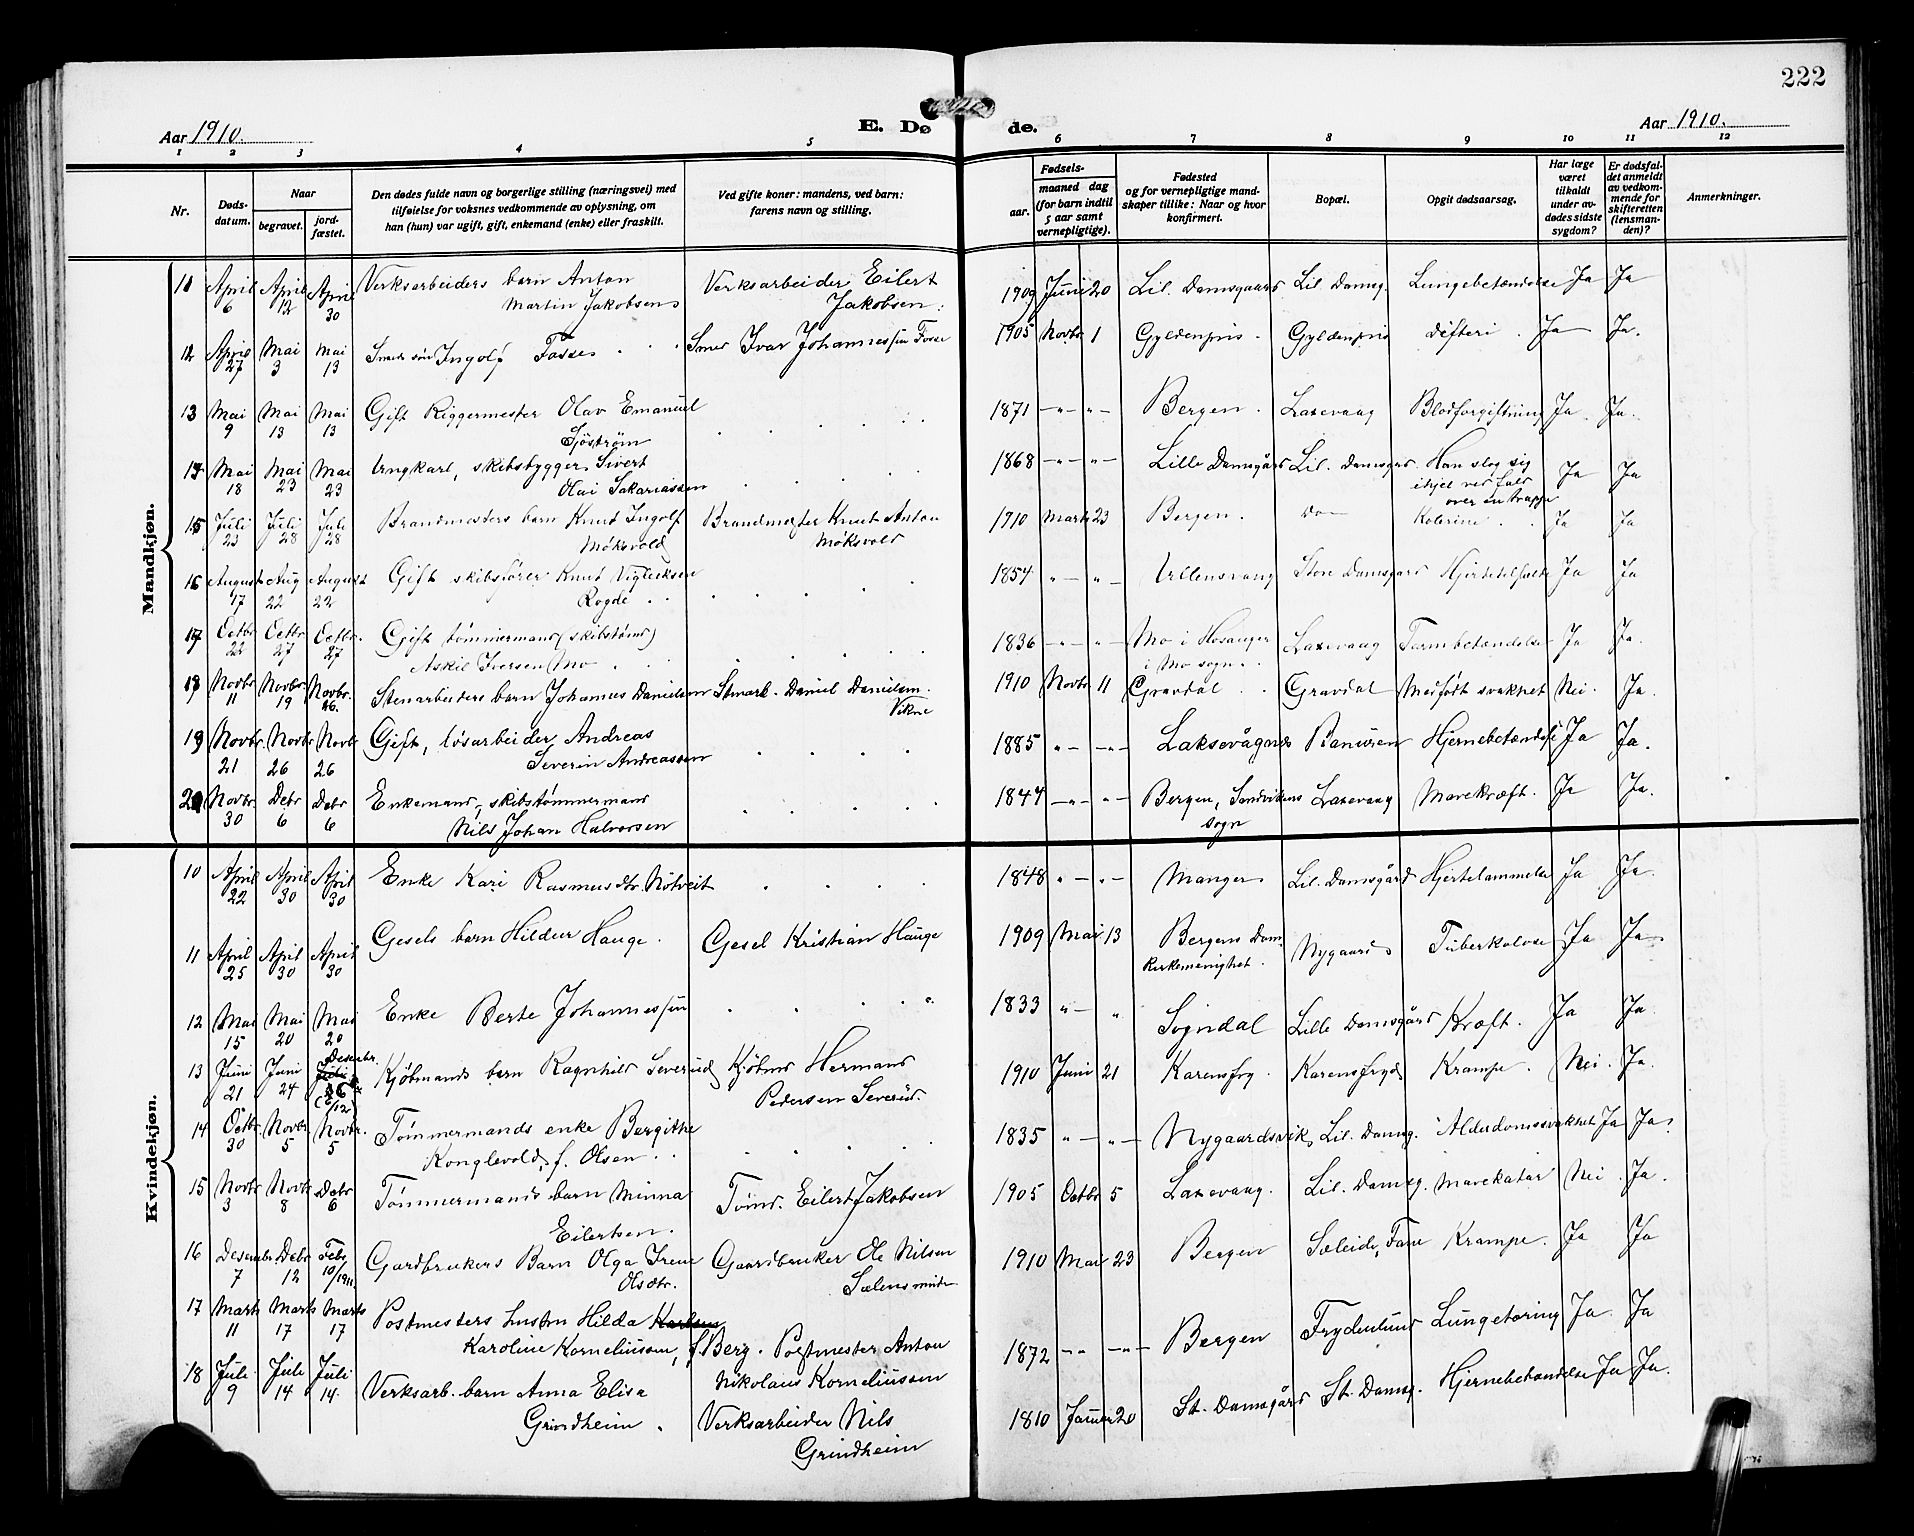 222
Aar 1910.
E. Dø
de.
Aar 1910.
1 2 3 4 5 6 7 8 9 10 11 12
Nr.
Døds-
datum.
Naar
begravet.
jord-
fæstet.
Den dødes fulde navn og borgerlige stilling (næringsvei) med
tilføielse for voksnes vedkommende av oplysning, om
han (hun) var ugift, gift, enkemand (enke) eller fraskilt.
Ved gifte koner: mandens, ved barn:
farens navn og stilling.
Fødsels-
aar.
maaned dag
(for barn indtil
5 aar samt
vernepligtige).
Fødested
og for vernepligtige mand-
skaper tillike: Naar og hvor
konfirmert.
Bopæl.
Opgit dødsaarsag.
Har læge
været
tilkaldt
under av-
dødes sidste
sygdom?
Er dødsfal-
det anmeldt
av vedkom-
mende for
skifteretten
(lensman-
den)?
Anmerkninger.
Mandkjøn.
11 April 6 April 12 April 30 Verksarbeiders barn Anton Verksarbeider Eilert 1909 Juni 20 Lil. Damsgaard Lil. Damsg. Lungebetændelse Ja Ja
Martin Jakobsen Jakobsen.
12 April 27 Mai 3 Mai 13 Smeds søn Ingolf Fosse Smed Ivar Johannessøn Fosse 1905 Novbr 1 Gyldenpris. Gyldenpris difteri. Ja Ja.
13 Mai 9 Mai 13 Mai 13 Gift Riggermester Olav Emanuel 1871 Bergen. Laxevaag Blodforgiftning Ja. Ja.
Sjöström
14 Mai 18 Mai 23 Mai 23 Ungkarl, skibsbygger Sivert 1868 Lille Damsgård Lil. Damsgård. Han slog sig Ja Ja
Olai Sakariassen ihjel ved fald
over en trappe
15 Juli 23 Juli 28 Juli 28 Brandmesters barn Knut Ingolf Brandmester Knut Anton 1910 Marts 23 Bergen. do Kolerine. Ja Ja
Møksvold Møksvold
16 August 17 Aug 22 August 22 Gift skibsfører Knut Vigleiksen 1854 Ullensvang Store Damsgård Hjertetilfælde Ja Ja
Rogde
17 Octbr 22 Octbr 27 Octbr. 27 Gift tømmermand (skibstømd) 1836 Mo i Hosanger Laxevaag Tarmbetændelse Ja Ja.
Askil Iversen Mo i Mo sogn.
18 Novbr 11 Novbr. 19 Novbr. 26. Stenarbeiders barn Johannes Danielsen Stenarb. Daniel Danielsen. 1910 Novbr 11 Gravdal Gravdal Medfødt svakhet Nei. Ja.
Vikne
19 Novbr. 21 Novbr 26 Novbr 26 Gift, løsarbeider Andreas 1885 Laksevågnes Banuren Hjernebetændelse Ja Ja.
Severin Andreassen
20 Novbr. 30 Debr 6 Debr 6 Enkemand, skibstømmermand 1844 Bergen, Sandvikens Laxevaag Mavekræft. Ja Ja.
Nils Johan Halvorsen sogn
Kvindekjøn.
10 April 22 April 30 April 30 Enke Kari Rasmusdtr. Nötveit 1848 Manger Lil. Damsgård Hjertelammelse Ja Ja.
11 April 25 April 30 April 30 Gesels barn Hildur Hauge. Gesel Kristian Hauge 1909 Mai 13 Bergens Dom- Nygaard Tuberkulose Ja Ja
kirkemenighet.
12 Mai 15 Mai 20 Mai 20 Enke Berte Johannessen 1833 Sogndal Lille Damsgård Kræft. Ja Ja.
13 Juni 21 Juni 24 Desembr. 26 (6/12) Kjøbmands barn Ragnhild Severud Kjøbmd Hermand 1910 Juni 21 Karensfry. Karensfryd Krampe. Nei. Ja.
Pedersen Severud.
14 Octbr. 30 Novbr. 5 Novbr. 5 Tømmermands enke Bergithe 1835 Nygaardsvik, Lil. Damsg. Alderdomssvakhet Ja Ja.
Konglevold, f. Olsen
15 Novbr 3 Novbr 8 Debr 6 Tømmermands barn Minna Tømd. Eilert Jakobsen 1905 Octbr 5 Laxevaag. Lil. Damsg. Mavekatar Nei. Ja.
Eilertsen.
16 Desembr. 7 Debr 12 Febr 10/1911 Gardbrukers Barn Olga Irene Gaardbruker Ole Nilsen 1910 Mai 23 Bergen Sæleide, Fane Krampe. Ja Ja
Olsdtr. Sælensminde
17 Marts 11 Marts 17 Marts 17 Postmesters hustru Hilda 1872 Bergen Frydenlund Lungetæring Ja. Ja
Karoline Korneliussen, f. Berg. Postmester Anton
18 Juli 9 Juli 14 Juli 14. Nikolaus Korneliussen
Verksarb. barn Anna Elisa Verksarbeider Nils 1810 Januar 20 St. Damsgård St. Damsg. Hjernebetændelse Ja Ja.
Grindheim. Grindheim